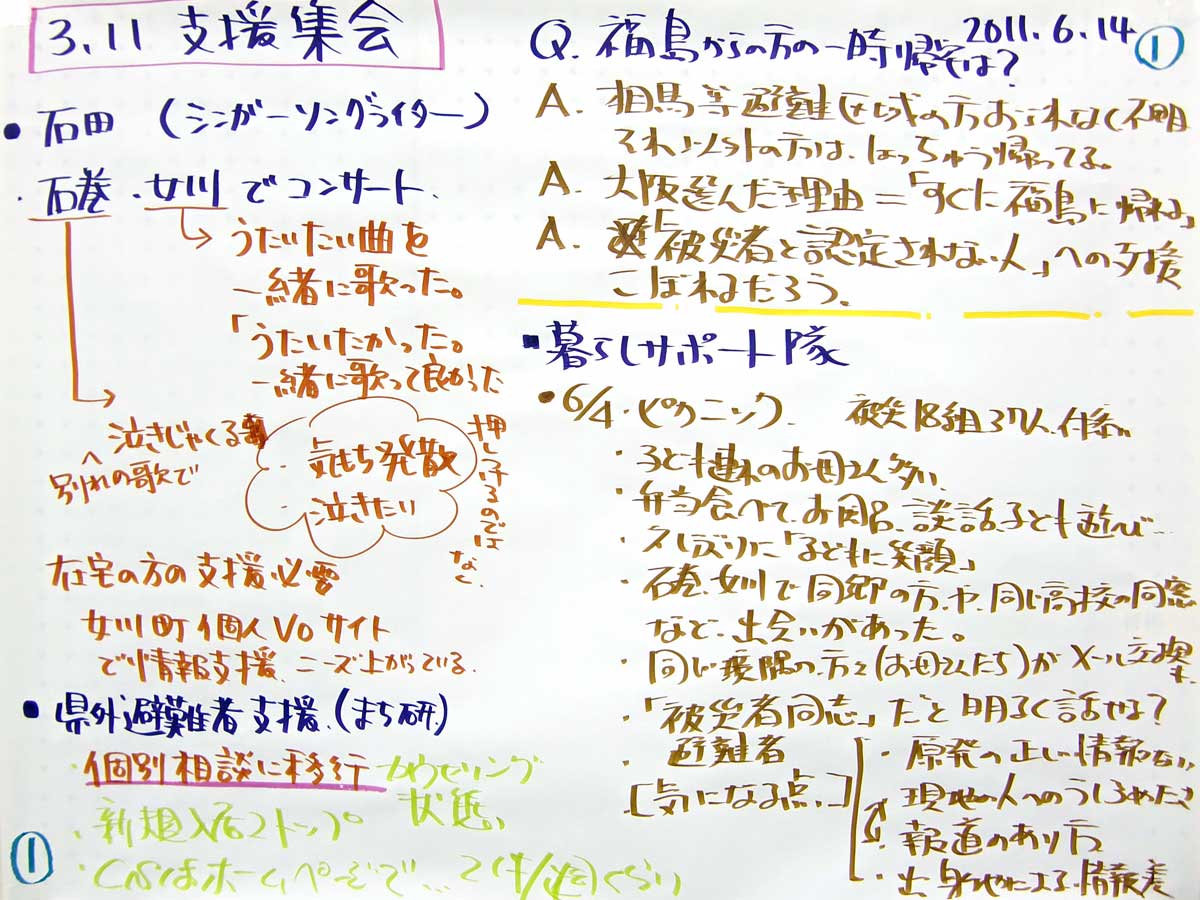 3.11 支援集会
• 石田 (シンガーソングライター)
・石巻、女川でコンサート.
うたいたい曲を
一緒に歌った。
「うたいたかった。
一緒に歌って良かった
泣きじゃくる
別れの歌で
気もち発散
泣きたい
押し
なく
在宅の方の支援必要
女川町個人Voサイト
で情報支援、ニーズ上がっている.
• 県外避難者支援.(まち研)
・個別相談に移行 カウセリング
状態
・新規入居ストップ
・CSはホームページで… 2件/週くらい
①
2011.6.14 ①
Q. 福島からの方の一時帰宅は?
A. 相馬等避難区域の方おられなく不明
それ以外の方は、しょっちゅう帰ってる。
A. 大阪選んだ理由=「すぐに福島に帰れる」
A. 「被災者と認定されない人」への支援
こぼれるだろう。
▪暮らしサポート隊
• 6/4・ピクニック. 被災18組37人
・子ども連れのお母さん多い
・弁当食べて、お国名、談話、子ども遊び…
・久しぶりに「子どもに笑顔」
・石巻、女川で同郷の方や、同じ高校の同窓
など、出会いがあった。
・同じ の方々(お母さんたち)がメール交換も
・「被災者同志」だと明るく話せる?
・避難者
[気になる点.]
・原発の正しい情報ない
・現地の人へのうしろめたさ
・報道のあり方
・出身地による情報差